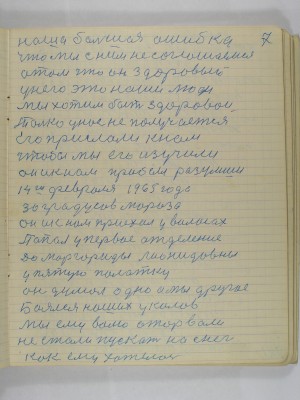 7
наша балшая ашибка
что мы с ним не соглошаемся
а том что он здоровый
у него это наши люди
мы хотим быть здоровой
толко у нас не получается
его прислали к нам
чтобы мы его азучили
он их нам прибавил разумиш
14го февраля 1965 года
30 градусов мороза
он их нам приехал у валасах
Папал у первое атделение
до маргариды леонидовны
у пятую палатку
он думал одно а ты другае
Баялся наших уколов
мы ему вово аторвали
не стали пускат на снег
как ему хателос